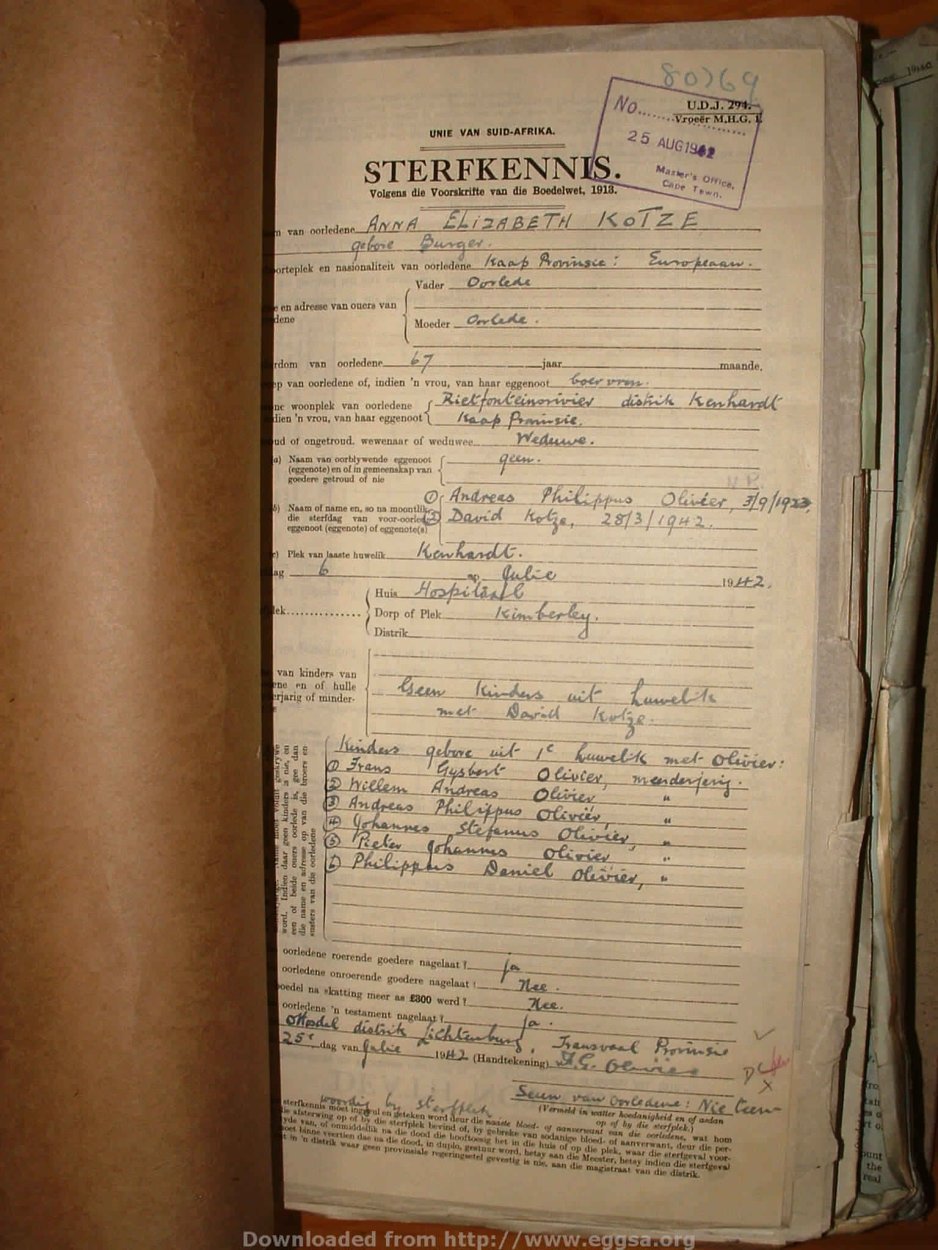 80769
U.D.J. 294.
Vroeër M.H.G. 1.
No.
25 AUG 1942
Master's Office,
Cape Town.
UNIE VAN SUID-AFRIKA.
STERFKENNIS.
Volgens die Voorskrifte van die Boedelwet, 1913.
van oorledene ANNA ELIZABETH KOTZE
gebore Burger.
oorteplek en nasionaliteit van oorledene Kaap Provinsie: Europeaan.
Vader Oorlede
e en adresse van ouers van
dene
Moeder Oorlede.
rdom van oorledene 67 jaar maande,
ep van oorledene of, indien 'n vrou, van haar eggenoot boervrou.
ne woonplek van oorledene Rietfonteinsrivier distrik Kenhardt
dien 'n vrou, van haar eggenoot Kaap Provinsie.
ud of ongetroud, wewenaar of weduwee Weduwe.
a) Naam van oorblywende eggenoot geen.
(eggenote) en of in gemeenskap van
goedere getroud of nie
① Andreas Philippus Olivier, 3/9/1923,
b) Naam of name en, so na moontlik
die sterfdag van voor-oorlede ② David Kotze, 28/3/1942.
eggenoot (eggenote) of eggenote(s)
c) Plek van laaste huwelik Kenhardt.
ag 6 op Julie 1942.
Huis Hospitaal
lek Dorp of Plek Kimberley.
Distrik
van kinders van
ene en of hulle
erjarig of minder-
Geen kinders uit huwelik
met David Kotze.
Kinders gebore uit 1e huwelik met Olivier:
① Frans Gysbert Olivier, meerderjerig.
② Willem Andreas Olivier "
③ Andreas Philippus Olivier, "
④ Johannes Stefanus Olivier, "
⑤ Pieter Johannes Olivier "
⑥ Philippus Daniel Olivier, "
word. Indien daar geen kinders is nie, en
een of beide ouers oorlede is, gee dan
die name en adresse op van die broers en
susters van die oorledene
oorledene roerende goedere nagelaat? Ja
oorledene onroerende goedere nagelaat? Nee.
oedel na skatting meer as £300 werd? Nee.
oorledene 'n testament nagelaat? Ja.
Ottosdal distrik Lichtenburg, Transvaal Provinsie
25e dag van Julie 1942 (Handtekening) Olivier
Seun van Oorledene: Nie teen-
(Vermeld in watter hoedanigheid en of aedan
op of by die sterfplek.)
woordig by sterfplek
sterfkennis moet ingevul en geteken word deur die naaste bloed- of aanverwant van die oorledene, wat hom
ie afsterwing op of by die sterfplek bevind of, by gebreke van sodanige bloed- of aanverwant, deur die per-
yde van, of onmiddellik na die dood die hooftoesig het in die huis of op die plek, waar die sterfgeval voor-
oet binne veertien dae na die dood, in duplo, gestuur word, hetsy aan die Meester, hetsy indien die sterfgeval
t in 'n distrik waar geen provinsiale regeringsetel gevestig is nie, aan die magistraat van die distrik.
Downloaded from http://www.eggsa.org